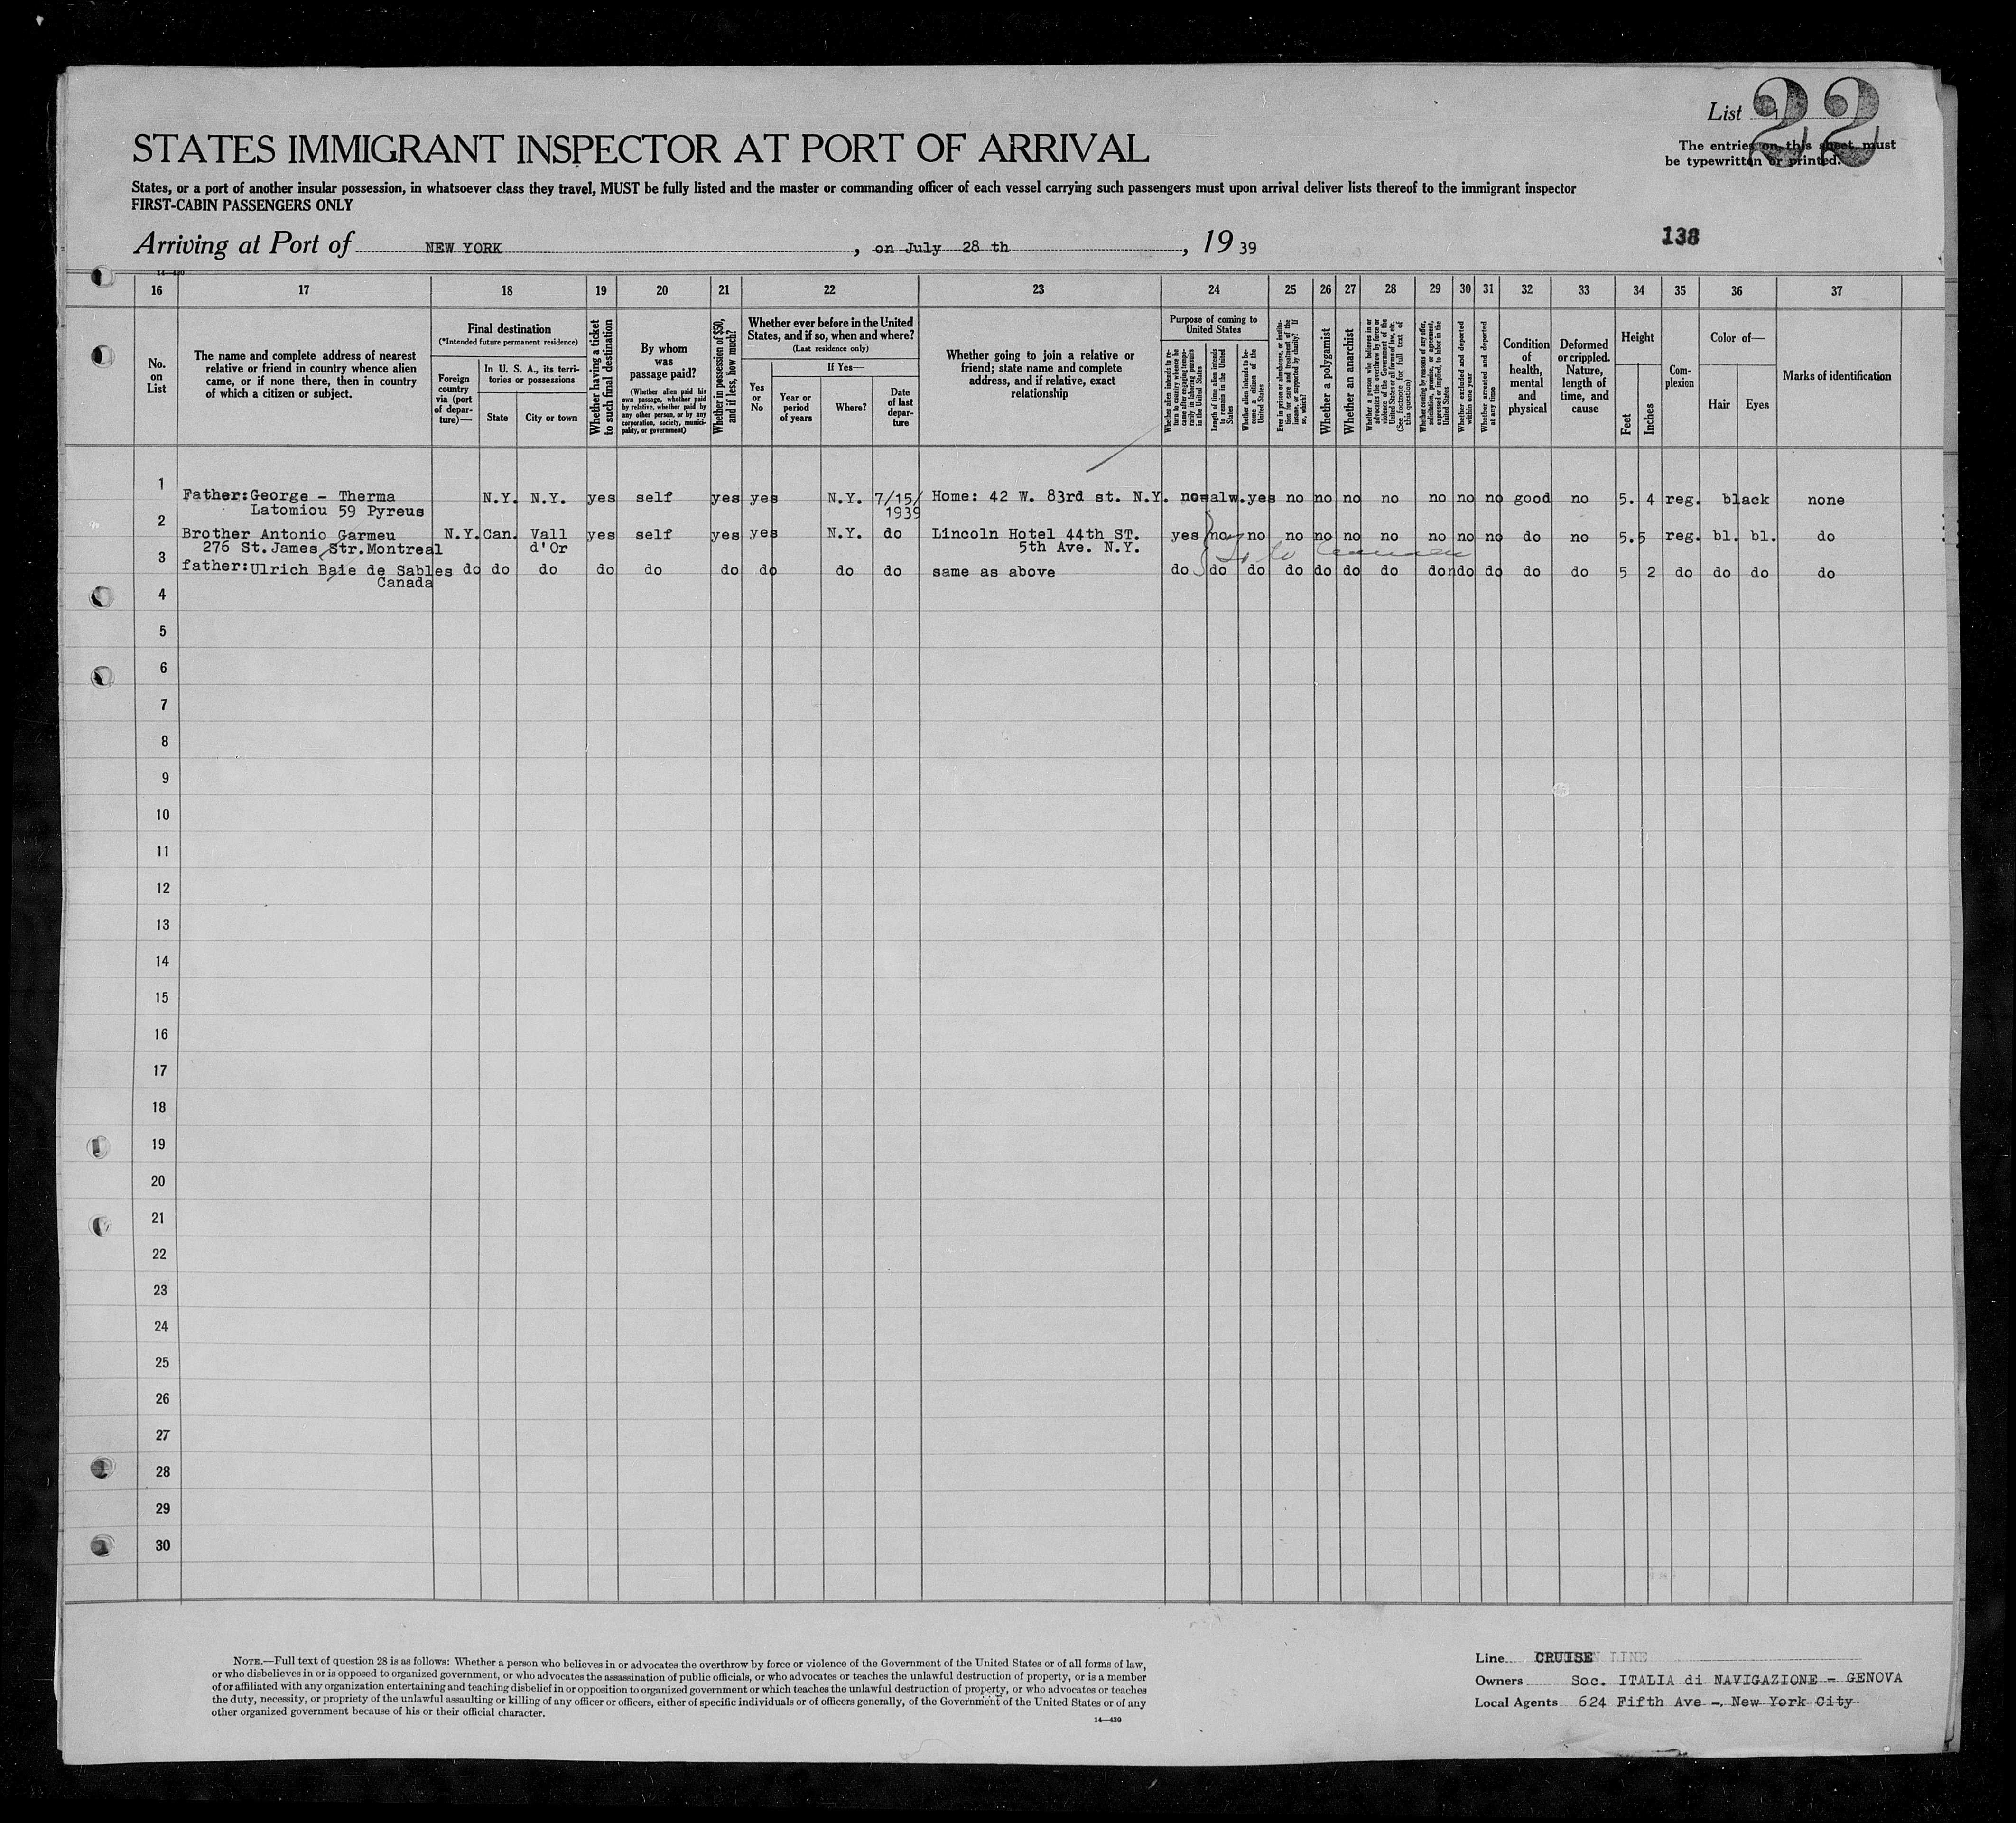 List 1
22
The entries on this sheet must
be typewritten or printed.
STATES IMMIGRANT INSPECTOR AT PORT OF ARRIVAL
States, or a port of another insular possession, in whatsoever class they travel, MUST be fully listed and the master or commanding officer of each vessel carrying such passengers must upon arrival deliver lists thereof to the immigrant inspector
FIRST-CABIN PASSENGERS ONLY
138
Arriving at Port of NEW YORK, on July 28 th, 19 39
14—430
16 17 18 19 20 21 22 23 24 25 26 27 28 29 30 31 32 33 34 35 36 37
No.
on
List
The name and complete address of nearest
relative or friend in country whence alien
came, or if none there, then in country
of which a citizen or subject.
Final destination
(*Intended future permanent residence)
Foreign
country
via (port
of depar-
ture)—
In U. S. A., its terri-
tories or possessions
State
City or town
Whether having a ticket
to such final destination
By whom
was
passage paid?
(Whether alien paid his
own passage, whether paid
by relative, whether paid by
any other person, or by any
corporation, society, munici-
pality, or government)
Whether in possession of $50,
and if less, how much?
Whether ever before in the United
States, and if so, when and where?
(Last residence only)
Yes
or
No
If Yes—
Year or
period
of years
Where?
Date
of last
depar-
ture
Whether going to join a relative or
friend; state name and complete
address, and if relative, exact
relationship
Purpose of coming to
United States
Whether alien intends to re-
turn to country whence he
came after engaging tempo-
rarily in laboring pursuits
in the United States
Length of time alien intends
to remain in the United
States
Whether alien intends to be-
come a citizen of the
United States
Ever in prison or almshouse, or institu-
tion for care and treatment of the
insane, or supported by charity? If
so, which?
Whether a polygamist
Whether an anarchist
Whether a person who believes in or
advocates the overthrow by force or
violence of the Government of the
United States or all forms of law, etc.
(See footnote for full text of
this question)
Whether coming by reasons of any offer,
solicitation, promise, or agreement,
expressed or implied, to labor in the
United States
Whether excluded and deported
within one year
Whether arrested and deported
at any time
Condition
of
health,
mental
and
physical
Deformed
or crippled.
Nature,
length of
time, and
cause
Height
Feet
Inches
Com-
plexion
Color of—
Hair
Eyes
Marks of identification
1
Father:George - Therma N.Y. N.Y. yes self yes yes N.Y. 7/15/ Home: 42 W. 83rd st. N.Y. no alw. yes no no no no no no no good no 5. 4 reg. black none
Latomiou 59 Pyreus 1939
2
Brother Antonio Garmeu N.Y. Can. Vall yes self yes yes N.Y. do Lincoln Hotel 44th ST. yes no no no no no no no no no do no 5.5 reg. bl. bl. do
276 St.James Str.Montreal d'Or 5th Ave. N.Y.
3
father:Ulrich Baie de Sables do do do do do do do do do same as above do do do do do do do do do do do do 5 2 do do do do
Canada
4
5
6
7
8
9
10
11
12
13
14
15
16
17
18
19
20
21
22
23
24
25
26
27
28
29
30
NOTE.—Full text of question 28 is as follows: Whether a person who believes in or advocates the overthrow by force or violence of the Government of the United States or of all forms of law,
or who disbelieves in or is opposed to organized government, or who advocates the assassination of public officials, or who advocates or teaches the unlawful destruction of property, or is a member
of or affiliated with any organization entertaining and teaching disbelief in or opposition to organized government or which teaches the unlawful destruction of property, or who advocates or teaches
the duty, necessity, or propriety of the unlawful assaulting or killing of any officer or officers, either of specific individuals or of officers generally, of the Government of the United States or of any
other organized government because of his or their official character.
14—430
Line CRUISE LINE
Owners Soc. ITALIA di NAVIGAZIONE - GENOVA
Local Agents 624 Fifth Ave -. New York City